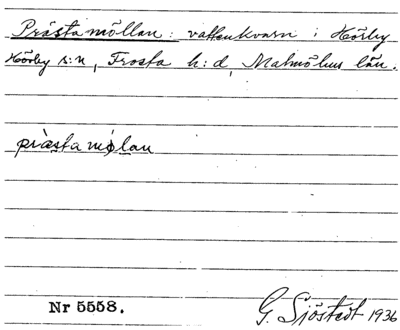 Prästamöllan: vattenkvarn i Hörby
Hörby s:n, Frosta h:d, Malmöhus län.
prä̀stamø̀lan
Nr 5558.
G. Sjöstedt 1936